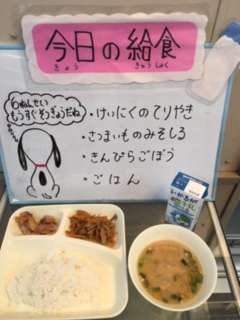 今日の給食
きょう きゅうしょく
6ねんせい
もうすぐそつぎょうだね
・けいにくのてりやき
・さつまいものみそしる
・きんぴらごぼう
・ごはん